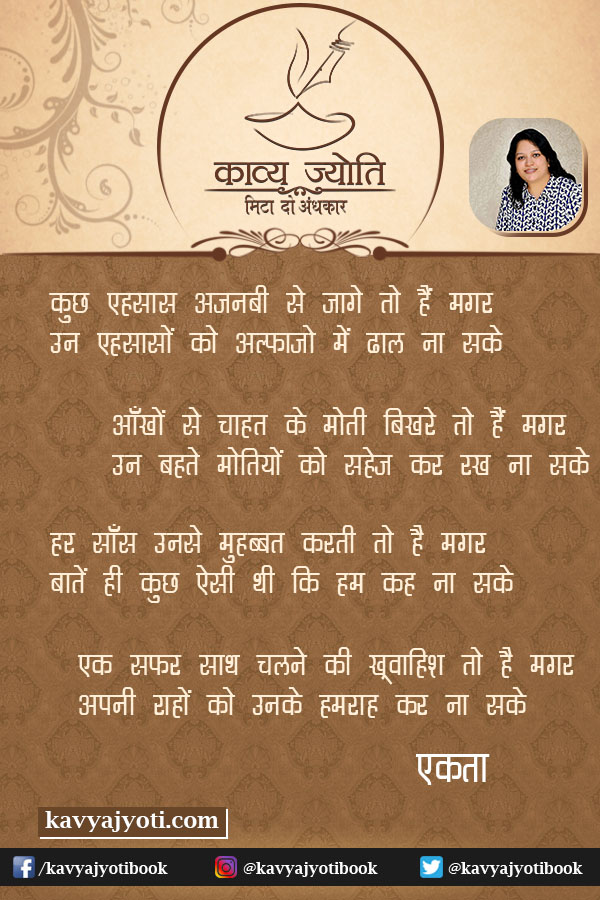 काव्य ज्योति
मिटा दो अंधकार
कुछ एहसास अजनबी से जागे तो हैं मगर
उन एहसासों को अल्फाजो में ढाल ना सके
आँखों से चाहत के मोती बिखरे तो हैं मगर
उन बहते मोतियों को सहेज कर रख ना सके
हर साँस उनसे मुहब्बत करती तो है मगर
बातें ही कुछ ऐसी थी कि हम कह ना सके
एक सफर साथ चलने की ख़्वाहिश तो है मगर
अपनी राहों को उनके हमराह कर ना सके
एकता
kavyajyoti.com
/kavyajyotibook @kavyajyotibook @kavyajyotibook